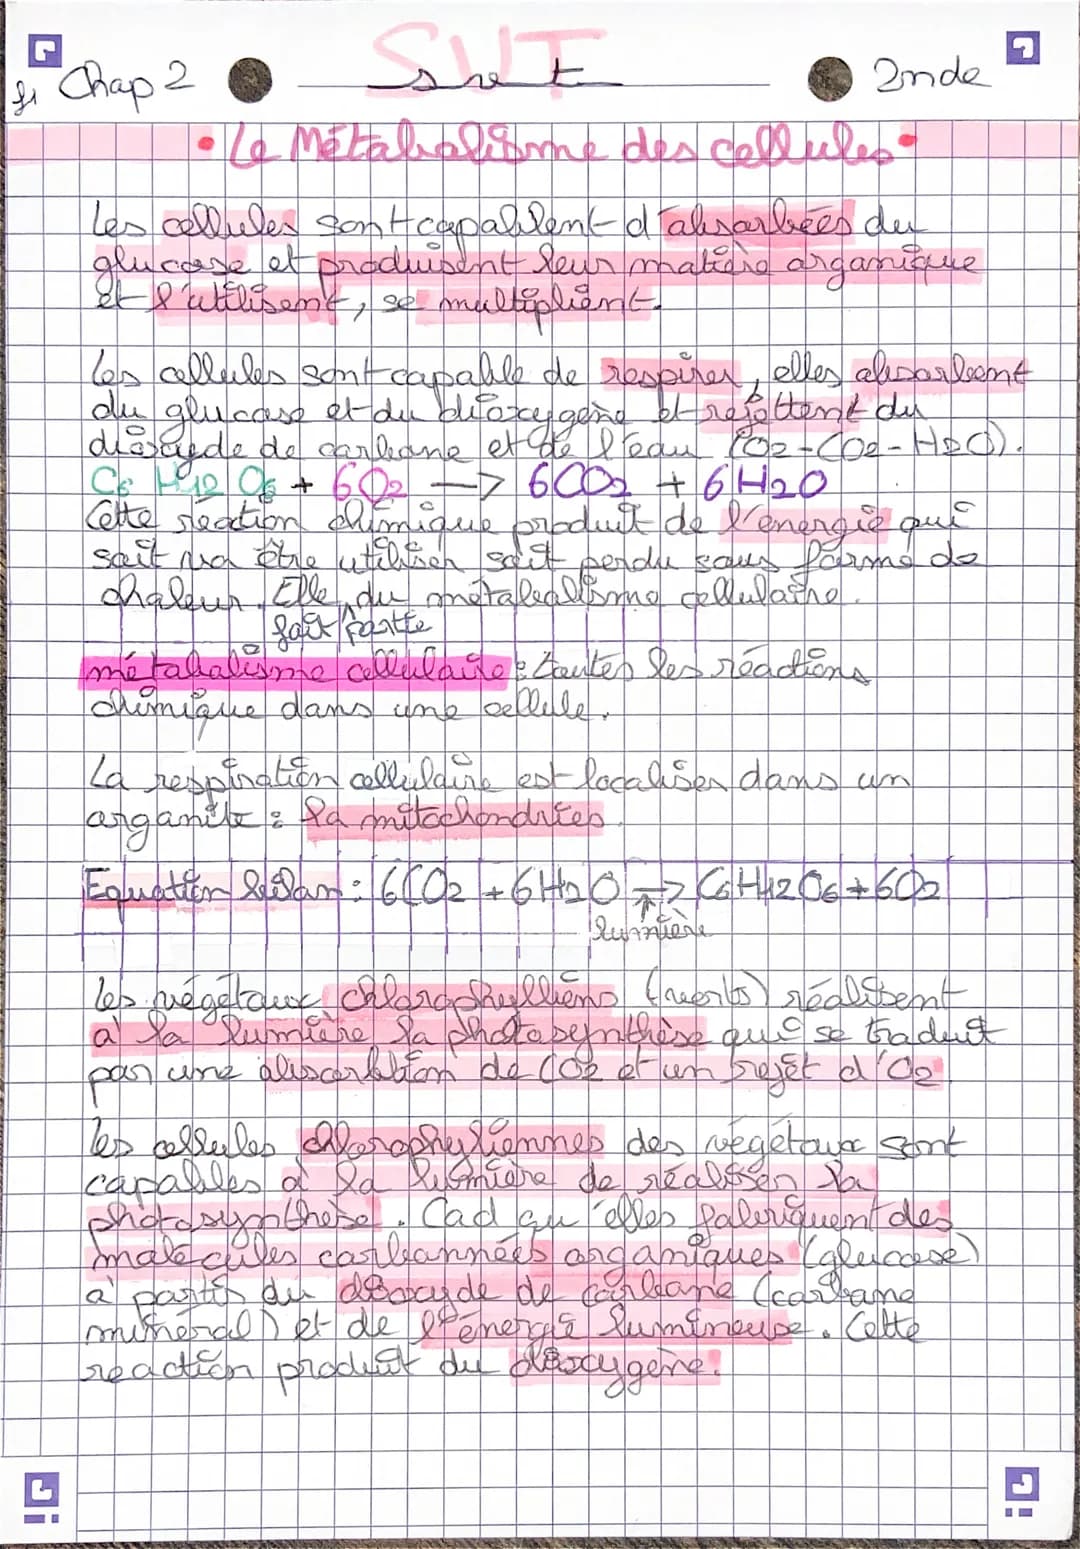 SVT
f1 Chap 2 svt 2nde
• Le Métabolisme des cellules •
Les cellules sont capablent d'absorbées du
glucose et produisent leur matière organique
et l'utilisent, se multiplient.
Les cellules sont capable de respirer, elles absorbent
du glucose et du dioxygène et rejettent du
dioxyde de carbone et de l'eau (O2-CO2-H2O).
C6 H12 O6 + 6O2 —> 6CO2 + 6H2O
Cette réaction chimique produit de l'énergie qui
soit va être utiliser soit perdu sous forme de
chaleur. Elle ^ du métabolisme cellulaire.
fait partie
métabolisme cellulaire : toutes les réactions
chimique dans une cellule.
La respiration cellulaire est localiser dans un
organite : la mitochondries.
Equation bilan : 6CO2 + 6H2O —> C6H12O6 + 6O2
↑
lumière
Les végétaux chlorophylliens (verts) réalisent
à la lumière la photosynthèse qui se traduit
par une absorbtion de CO2 et un rejet d'O2
Les cellules chlorophyliennes des végétaux sont
capables à la lumière de réaliser la
photosynthèse. Cad qu'elles fabriquent des
molécules carbonnées organiques (glucose)
à partir du dioxyde de carbone (carbone
minéral) et de l'énergie lumineuse. Cette
reaction produit du dioxygène.